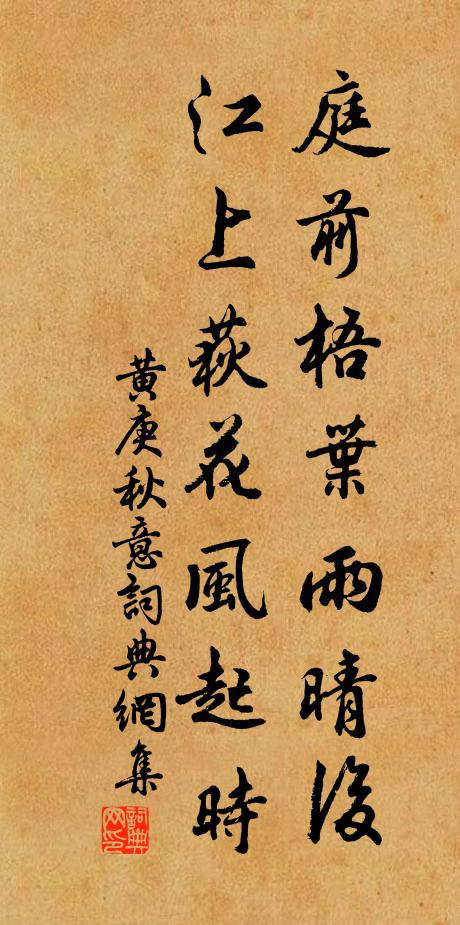 庭前梧葉雨晴後
江上萩花風起時
黃庚秋意詞典網集
詞典网印